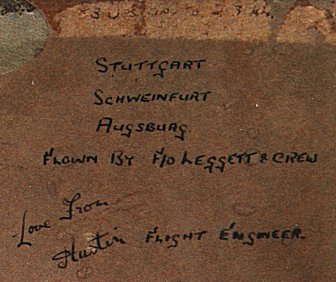 STUTTGART
SCHWEINFURT
AUGSBURG.
FLOWN BY F/O LEGGETT & CREW
Love From
FLIGHT ENGINEER.